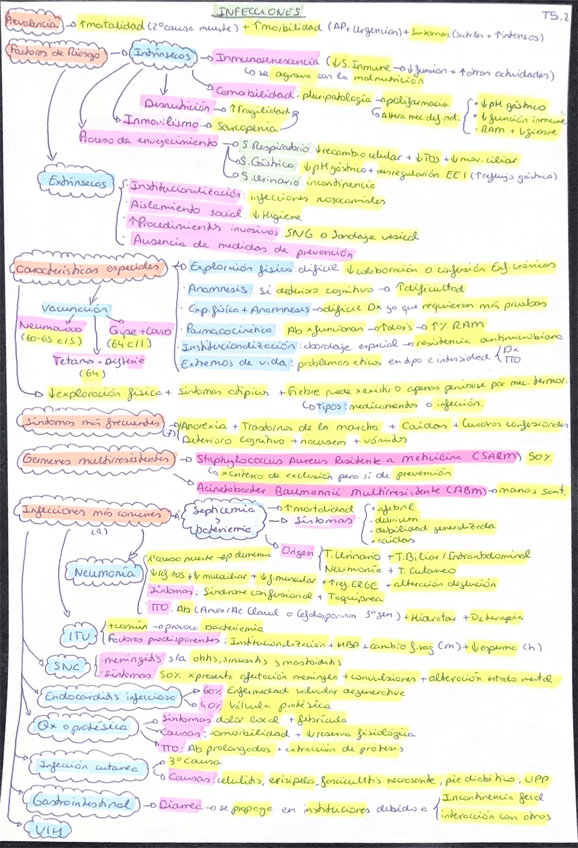 INFECCIONES
T5.2
Prevalencia → ↑mortalidad (2ª causa muerte) + ↑morbilidad (AP + Urgencias) + Síntomas (sutiles + ↑intensos)
Factores de Riesgo → Intrínsecos → Inmunosenescencia (↓S. Inmune → ↓función + ↑otras actividades)
↳ se agrava con la malnutrición
Comorbilidad: pluripatología → polifarmacia
↳ Altera mec. def. nat.
· ↓pH gástrico
· ↓función inmune
· RAM + ↓fiebre
Desnutrición → ↑Fragilidad
Inmovilismo → Sarcopenia
Proceso de envejecimiento → S. Respiratorio ↓recambio celular + ↓TOS + ↓mov. ciliar
S. Gástrico ↓pH gástrico + desregulación EEI (↑reflujo gástrico)
S. Urinario incontinencia
Extrínsecos
· Institucionalización: infecciones nosocomiales
· Aislamiento social ↓Higiene
· ↑Procedimientos invasivos SNG o Sondaje vesical
· Ausencia de medidas de prevención
Características especiales
· Exploración física: difícil ↓colaboración o confusión Enf. crónicas
· Anamnesis Si deterioro cognitivo → ↑dificultad
· Exp. física + Anamnesis → difícil Dx ya que requieren más pruebas
· Farmacocinética Ab x función ren → ↑ → ↑% RAM
· Institucionalización: abordaje especial → resistencia antimicrobiana
· Extremos de vida: problemas éticos en tipo e intensidad { Dx
TTO
Vacunación
Neumococo
(60-65 c/5)
Gripe + Covid
(64 c/1)
Tetano - Difteria
(64)
↓exploración física + síntomas atípicos + Fiebre puede no existir o apenas percibirse por mec. termor.
↳ Tipos: medicamentos o infección.
Síntomas más frecuentes
(7)
Anorexia + Trastornos de la marcha + Caídas + Cuadros confusionales
Deterioro cognitivo + nauseas + vómitos
Gérmenes multirresistentes → Staphylococcus Aureus Resistente a meticilina (SARM) 50%
↳ x criterio de exclusión pero sí de prevención
Acinetobacter Baumannii Multirresistente (ABm) → manos sanit.
Infecciones más comunes
(9)
Septicemia
y
bacteriemia
→ ↑mortalidad
→ Síntomas
· afebril
· delirium
· debilidad generalizada
· caídas
Origen
T. Urinario + T. Biliar / Intraabdominal
Neumonía + T. Cutáneo
Neumonía
1ª causa muerte → ep demencia
↓reg. tos + ↓mucociliar + ↓f. muscular + ↑reg. ERGE + alteración deglución
Síntomas: Síndrome confusional + Taquipnea
TTO: Ab (Amox/Ac Clavul o Cefalosporinas 3ª gen) + Hidratar + O2 terapia
ITU
+ común → provoca bacteriemia
Factores predisponentes: Institucionalización + HBP + cambio f. vag (m) + ↓esperma (h)
SNC
meningitis s/a otitis, sinusitis y mastoiditis
Síntomas 50% x presente afectación meníngea + convulsiones + alteración estado mental
Endocarditis infecciosa → 60% Enfermedad valvular degenerativa
→ 40% Válvula protésica
Qx o protésica → Síntomas dolor local + febrícula
→ Causas: comorbilidad + ↓reserva fisiológica
→ TTO: Ab prolongados + extracción de prótesis
Infección cutánea → 3ª causa
→ Causas: celulitis, erisipela, fascicultis necrosante, pie diabético, UPP
Gastrointestinal → Diarrea → se propaga en instituciones debido a { Incontinencia fecal
interacción con otros
VIH